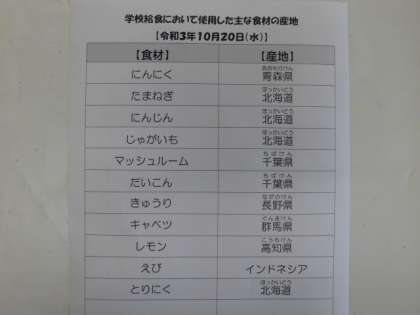 学校給食において使用した主な食材の産地
【令和3年10月20日(水)】
【食材】 【産地】
にんにく 青森県
たまねぎ 北海道
にんじん 北海道
じゃがいも 北海道
マッシュルーム 千葉県
だいこん 千葉県
きゅうり 長野県
キャベツ 群馬県
レモン 高知県
えび インドネシア
とりにく 北海道